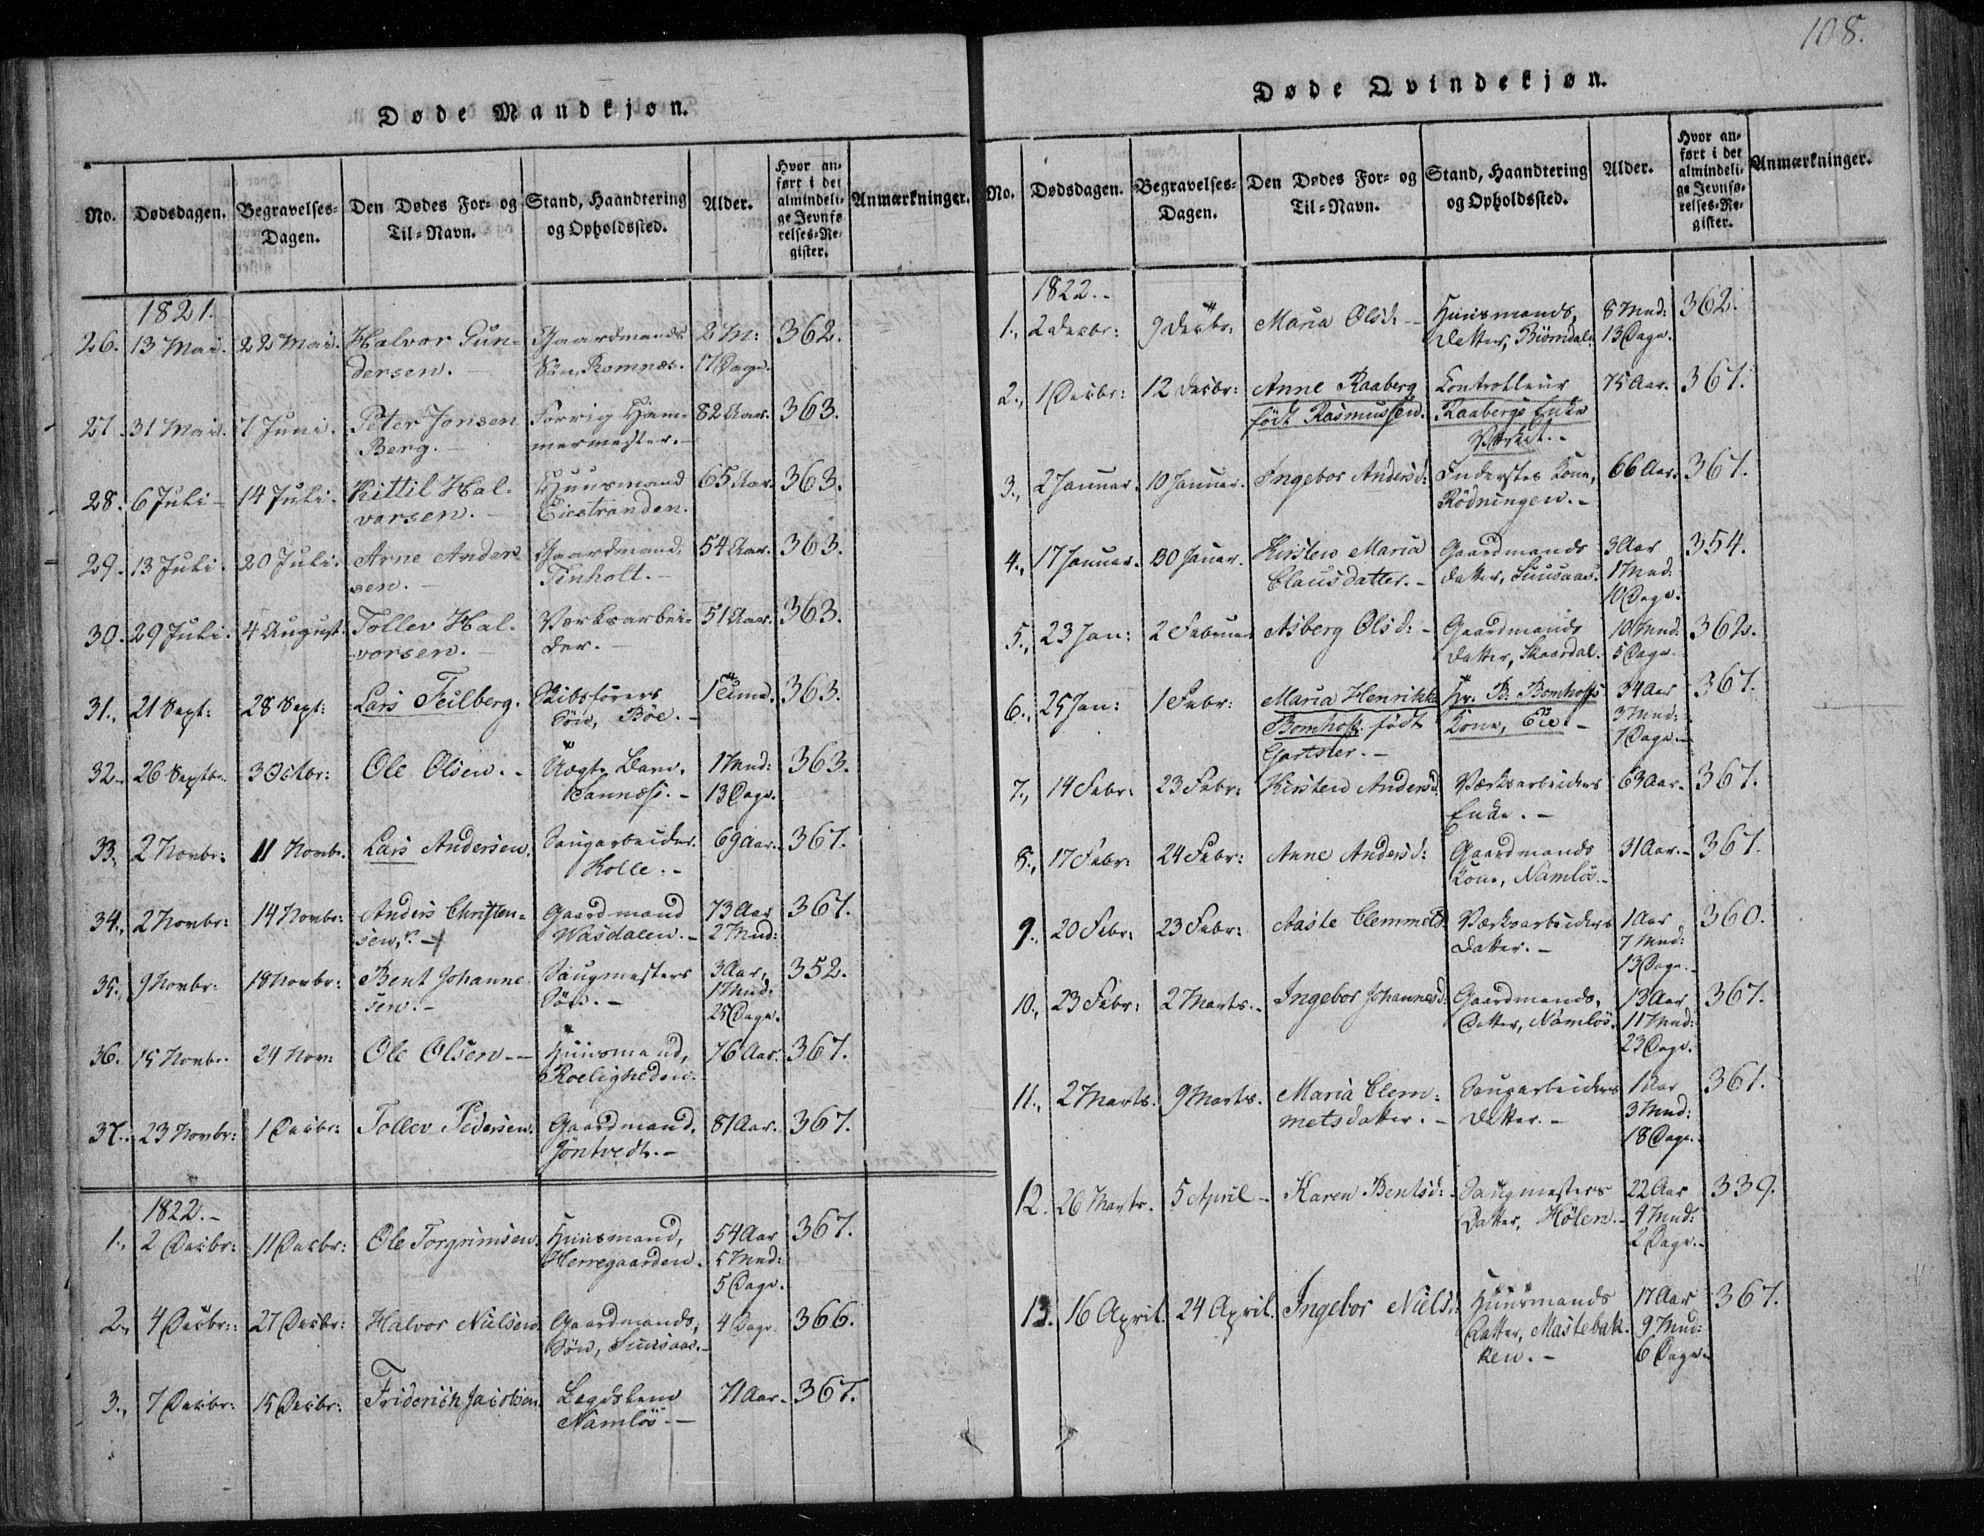 108.
Døde Mandkjøn.
No. Dødsdagen. Begravelses-Dagen. Den Dødes For- og Til-Navn. Stand, Haandtering og Opholdssted. Alder. Hvor anført i det almindelige Jevnførelses-Register. Anmærkninger.
1821.
26. 13 Mai. 22 Mai. Halvor Gun- Gaardmands 2 M: 362.
dersen. Søn, Romnæs. 17 Dage.
27. 31 Mai. 7 Juni. Peter Jonsen Forrig Ham- 82 Aar. 363.
Berg. mermester.
28. 6 Juli 14 Juli. Kittil Hal- Huusmand 65 Aar. 363.
vorsen. Eiestranden.
29. 13 Juli. 20 Juli. Arne Ander- Gaardmand, 54 Aar. 363.
sen. Tinholt.
30. 29 Juli. 4 August. Tollev Hal- Værksarbei- 51 Aar. 363.
vorsen. der.
31. 21 Sept: 28 Sept: Lars Feilberg. Skibsførers 363.
Böe.
32. 26 Septbr. 3 Octbr: Ole Olsen. Barn, 1 Mnd: 363.
Kannæss. 13 Dage.
33. 2 Novbr: 11 Novbr. Lars Andersen. Saugarbeider. 69 Aar. 367.
Holle.
34. 2 Novbr: 14 Novbr: Anders Christen- Gaardmand 73 Aar 367.
sen. Wasdalen. 2 Mnd:
35. 9 Novbr: 18 Novbr: Bent Johanne- Saugmesters 3 Aar, 352.
sen. Søn. 1 Mnd:
25 Dage.
36. 15 Novbr. 24 Nov: Ole Olsen Huusmand, 76 Aar. 367.
Roeligheden.
37. 23 Novbr: 1 Decbr: Tollev Pedersen. Gaardmand. 81 Aar. 367.
Jöntvedt.
1822.
1. 2 Decbr: 11 Decbr: Ole Torgrimsen. Huusmand, 54 Aar 367.
Herregaarden. 5 Mnd:
5 Dage.
2. 4 Decbr: 27 Decbr: Halvor Nielsen. Gaardmands, 4 Dage. 366.
Søn, Suusaas.
3. 7 Decbr: 15 Decbr: Friderich Jacobsen. Lægdslem 71 Aar. 367.
Namlös
Døde Qvindekjøn.
No. Dødsdagen. Begravelses-Dagen. Den Dødes For- og Til-Navn. Stand, Haandtering og Opholdssted. Alder. Hvor anført i det almindelige Jevnførelses-Register. Anmærkninger.
1822.
1. 2 Decbr: 9 Decbr: Maria Olsd: Huusmands, 8 Mnd: 362.
Datter, Biörndal. 13 Dage.
2. 1 Decbr: 12 Decbr: Anne Raaberg Controlleur 75 Aar. 367.
födt Rasmussen. Raabergs Enke
Værket.
3. 2 Januar. 10 Januar. Ingebor Andersd: Inderstes Kone, 66 Aar. 367.
Rödningen.
4. 17 Januar. 30 Januar. Kirsten Maria Gaardmands 3 Aar 354.
Clausdatter. Datter, Suusaas. 1 Mnd:
10 Dage.
5. 23 Jan: 2 Februar Asberg Olsd: Gaardmands 10 Mnd: 362.
Datter, Skaardal. 5 Dage.
6. 25 Jan: 1 Febr: Maria Henrikke Hr. B. Bomhoffs 34 Aar 367.
Bomhoff födt Kone, Eie 3 Mnd:
7 Dage.
7. 14 Febr: 23 Febr: Kirsten Andersd. Værksarbeiders 63 Aar. 367.
Enke.
8. 17 Febr: 24 Febr: Anne Andersd: Gaardmands 31 Aar. 367.
Kone, Namlös.
9. 20 Febr: 23 Febr: Aaste Clemmetsd. Værksarbeiders 1 Aar 360.
Datter. 7 Mnd:
13 Dage.
10. 23 Febr: 2 Marts. Ingebor Johannesd: Gaardmands, 13 Aar 367.
Datter, Namlös. 11 Mnd:
23 Dage.
11. 2 Marts. 9 Marts. Maria Clem- Saugarbeiders 1 Aar 361.
metsdatter. Datter. 3 Mnd:
18 Dage.
12. 26 Marts. 5 April Karen Bentsd: Saugmesters 22 Aar 339.
Datter, Hölen. 4 Mnd:
2 Dage.
13. 16 April. 24 April. Ingebor Nielsd: Huusmands 17 Aar 367.
Datter, Mastebak- 9 Mnd:
ken. 6 Dage.